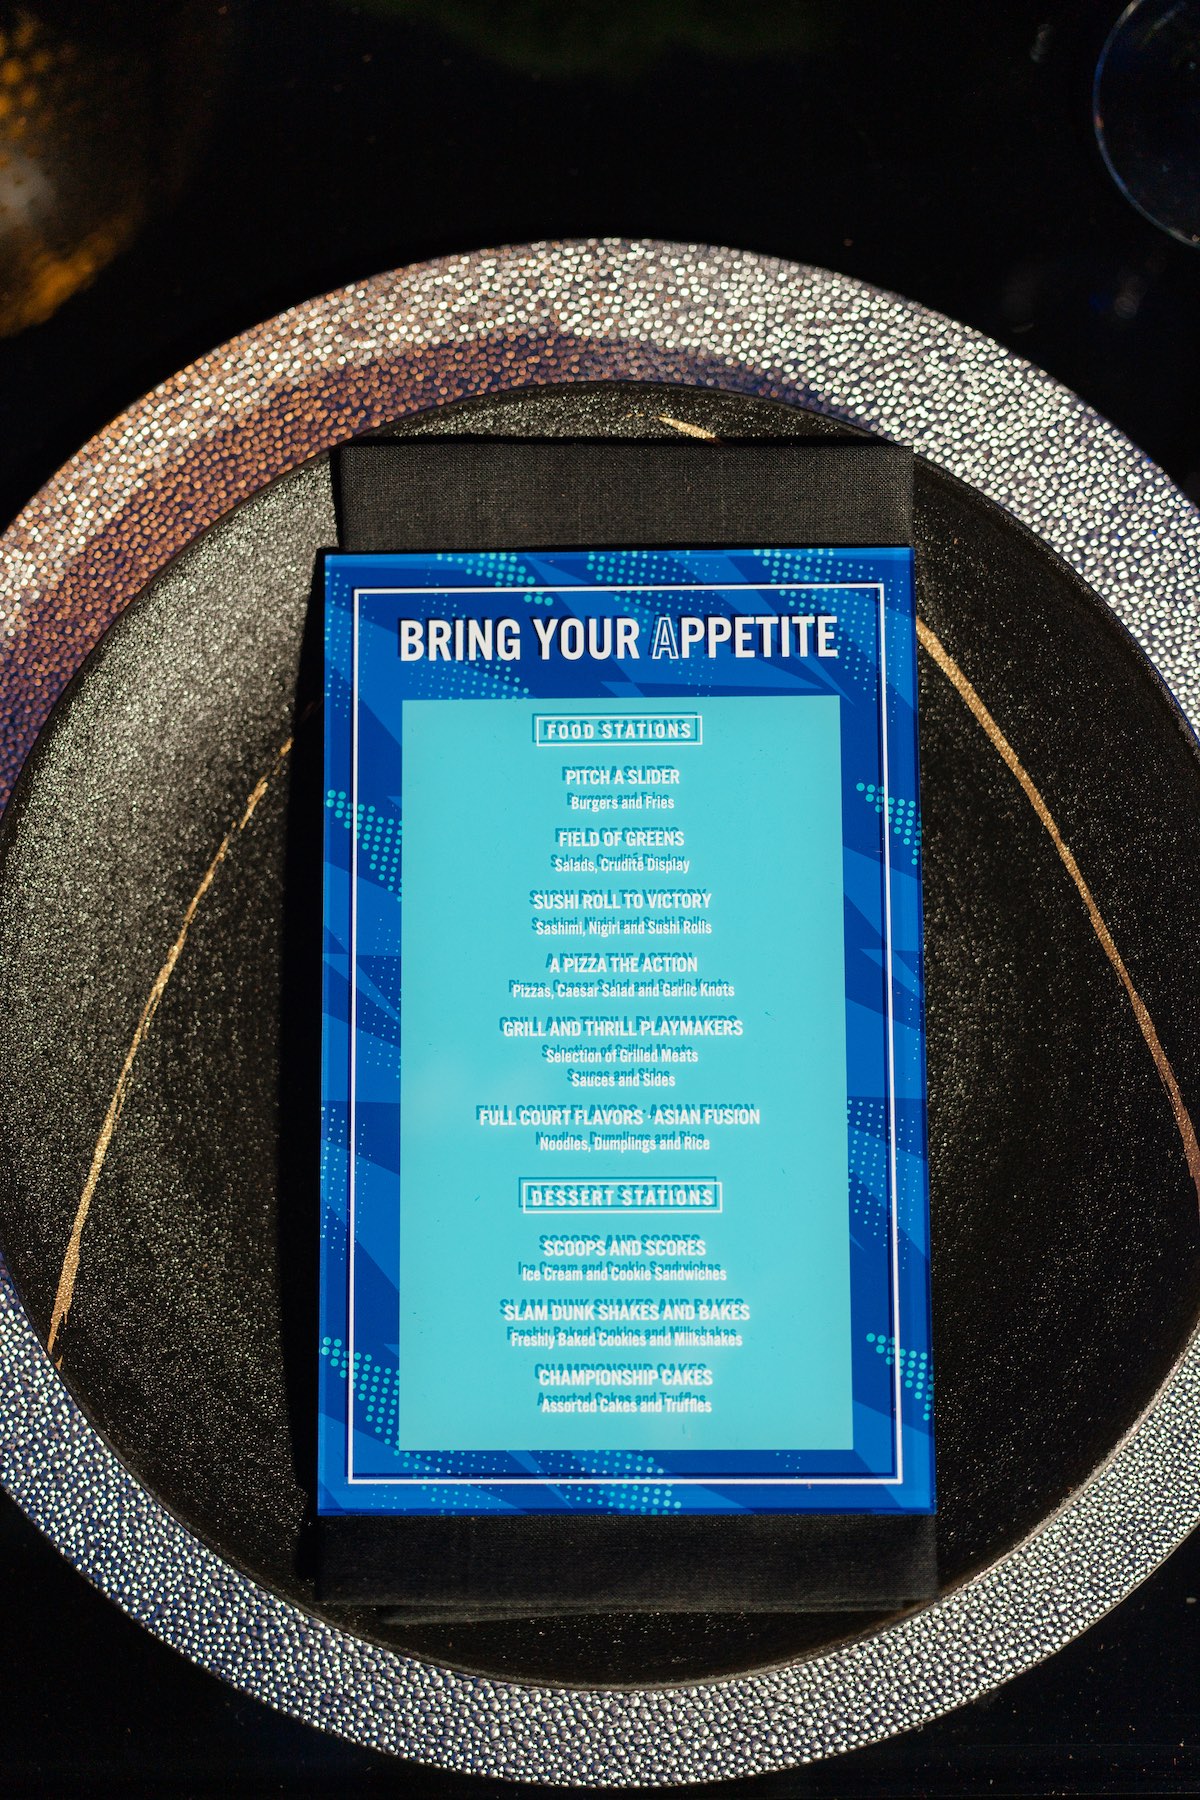 BRING YOUR APPETITE
FOOD STATIONS
PITCH A SLIDER
Burgers and Fries
FIELD OF GREENS
Salads, Crudité Display
SUSHI ROLL TO VICTORY
Sashimi, Nigiri and Sushi Rolls
A PIZZA THE ACTION
Pizzas, Caesar Salad and Garlic Knots
GRILL AND THRILL PLAYMAKERS
Selection of Grilled Meats
Sauces and Sides
FULL COURT FLAVORS · ASIAN FUSION
Noodles, Dumplings and Rice
DESSERT STATIONS
SCOOPS AND SCORES
Ice Cream and Cookie Sandwiches
SLAM DUNK SHAKES AND BAKES
Freshly Baked Cookies and Milkshakes
CHAMPIONSHIP CAKES
Assorted Cakes and Truffles